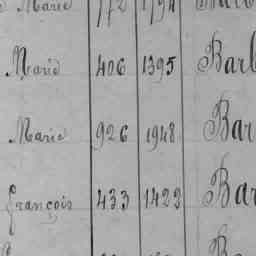 Marie 772 1794 Barb
Marie 406 1395 Barb
Marie 926 1948 Bar
François 433 1422 Bar